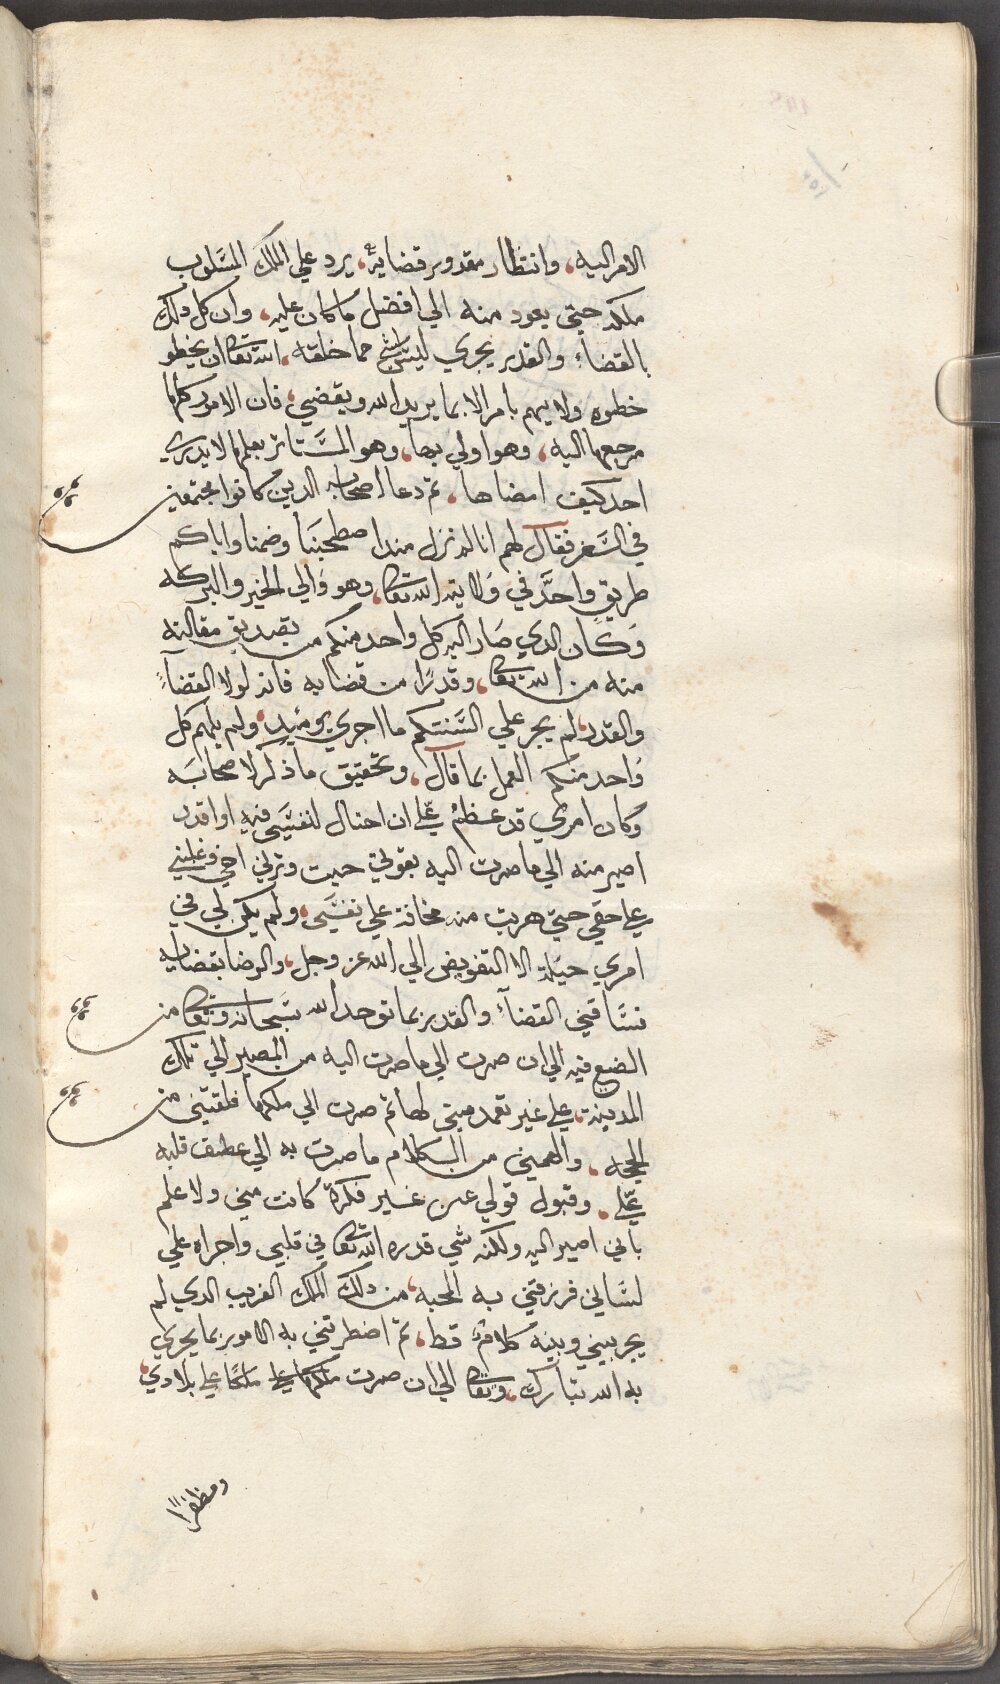 الامر اليه، وانتظار مقدور قضايه، يرد علي الملك المسَلوب
ملكه حتي يعود منه الي افضل ما كان عليه، وان كل دلك
بالقضاء والقدر يجري ليسَ شي مما خلقه، الله تعالى ان يخطو
خطوه ولا يهم بامر الا بما يريد الله ويقضي، فان الامور كلها
مرجعها اليه، وهو اولي بها، وهو المسَتاثر بعلمها لا يدري
احد كيف امضاها، ثم دعا اصحابه الدين كانوا مجتمعين
في السَفر فقال لهم انا لم نزل مند اصطحبنا وضمنا واياكم
طريق واحد في ولاية الله تعالى، وهو والي الخير والبركه
وكان الدي صار اليه كل واحد منكم من تصديق مقالته
منه من الله تعالى، وقدرًا من قضايه فانه لولا القضاء
والقدر، لم يجر علي السَنتكم ما اجري يوميد، ولم يلهم كل
واحد منكم العمل بما قال، وتحقيق ما ذكر لاصحابه
وكان امري قد عظم عَلي ان احتال لنفسَي فيه او اقدر
اصير منه الي ما صرت اليه بقولي حيت وترني اخي وغلبني
علي حقي حتي هربت منه مخافة علي نفسَي، ولم يكن لي في
امري حيلة الا التفويض الي الله عز وجل، والرضا بقضايه
نسَاقني القضآء والقدر بما توحد الله سَبحانه وتعالى من
الصنع فيه الي ان صرت الي ما صرت اليه من المصير الي تلك
المدينة، علي غير تعمد مني لها ثم صرت الي ملكها فلقتني من
الحجه، والهمني من الكلام ما صرت به الي عطف قلبه
عَلي، وقبول قولي عن غير فكرة كانت مني ولا علم
باني اصير اليه ولكنه شي قدره الله تعالى في قلبي واجراه علي
لسَاني فرزقني به المحبه، من دلك الملك الغريب الدي لم
يجر بيني وبينه كلام قط، ثم اضطرتني به الامور بما يجري
به الله تبارك، وتعالى الي ان صرت ملكها علي ملكًا علي بلادي،
ومظفرا